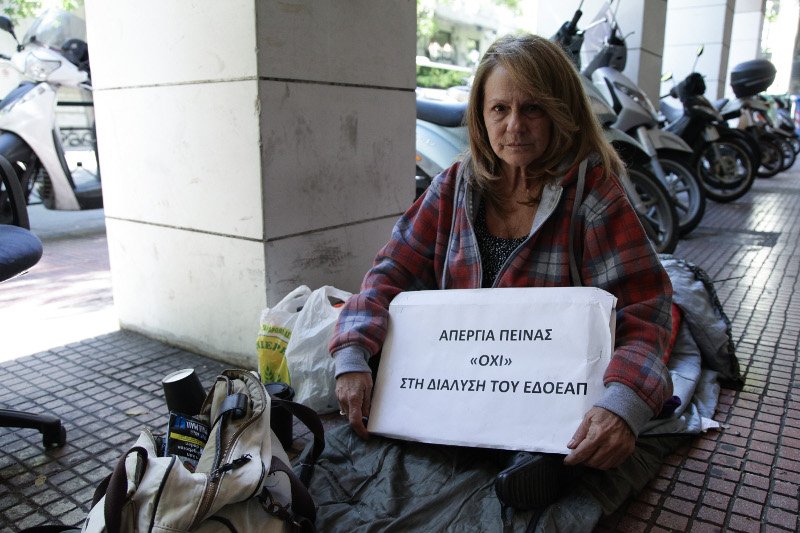 ΑΠΕΡΓΙΑ ΠΕΙΝΑΣ
«ΟΧΙ»
ΣΤΗ ΔΙΑΛΥΣΗ ΤΟΥ ΕΔΟΕΑΠ